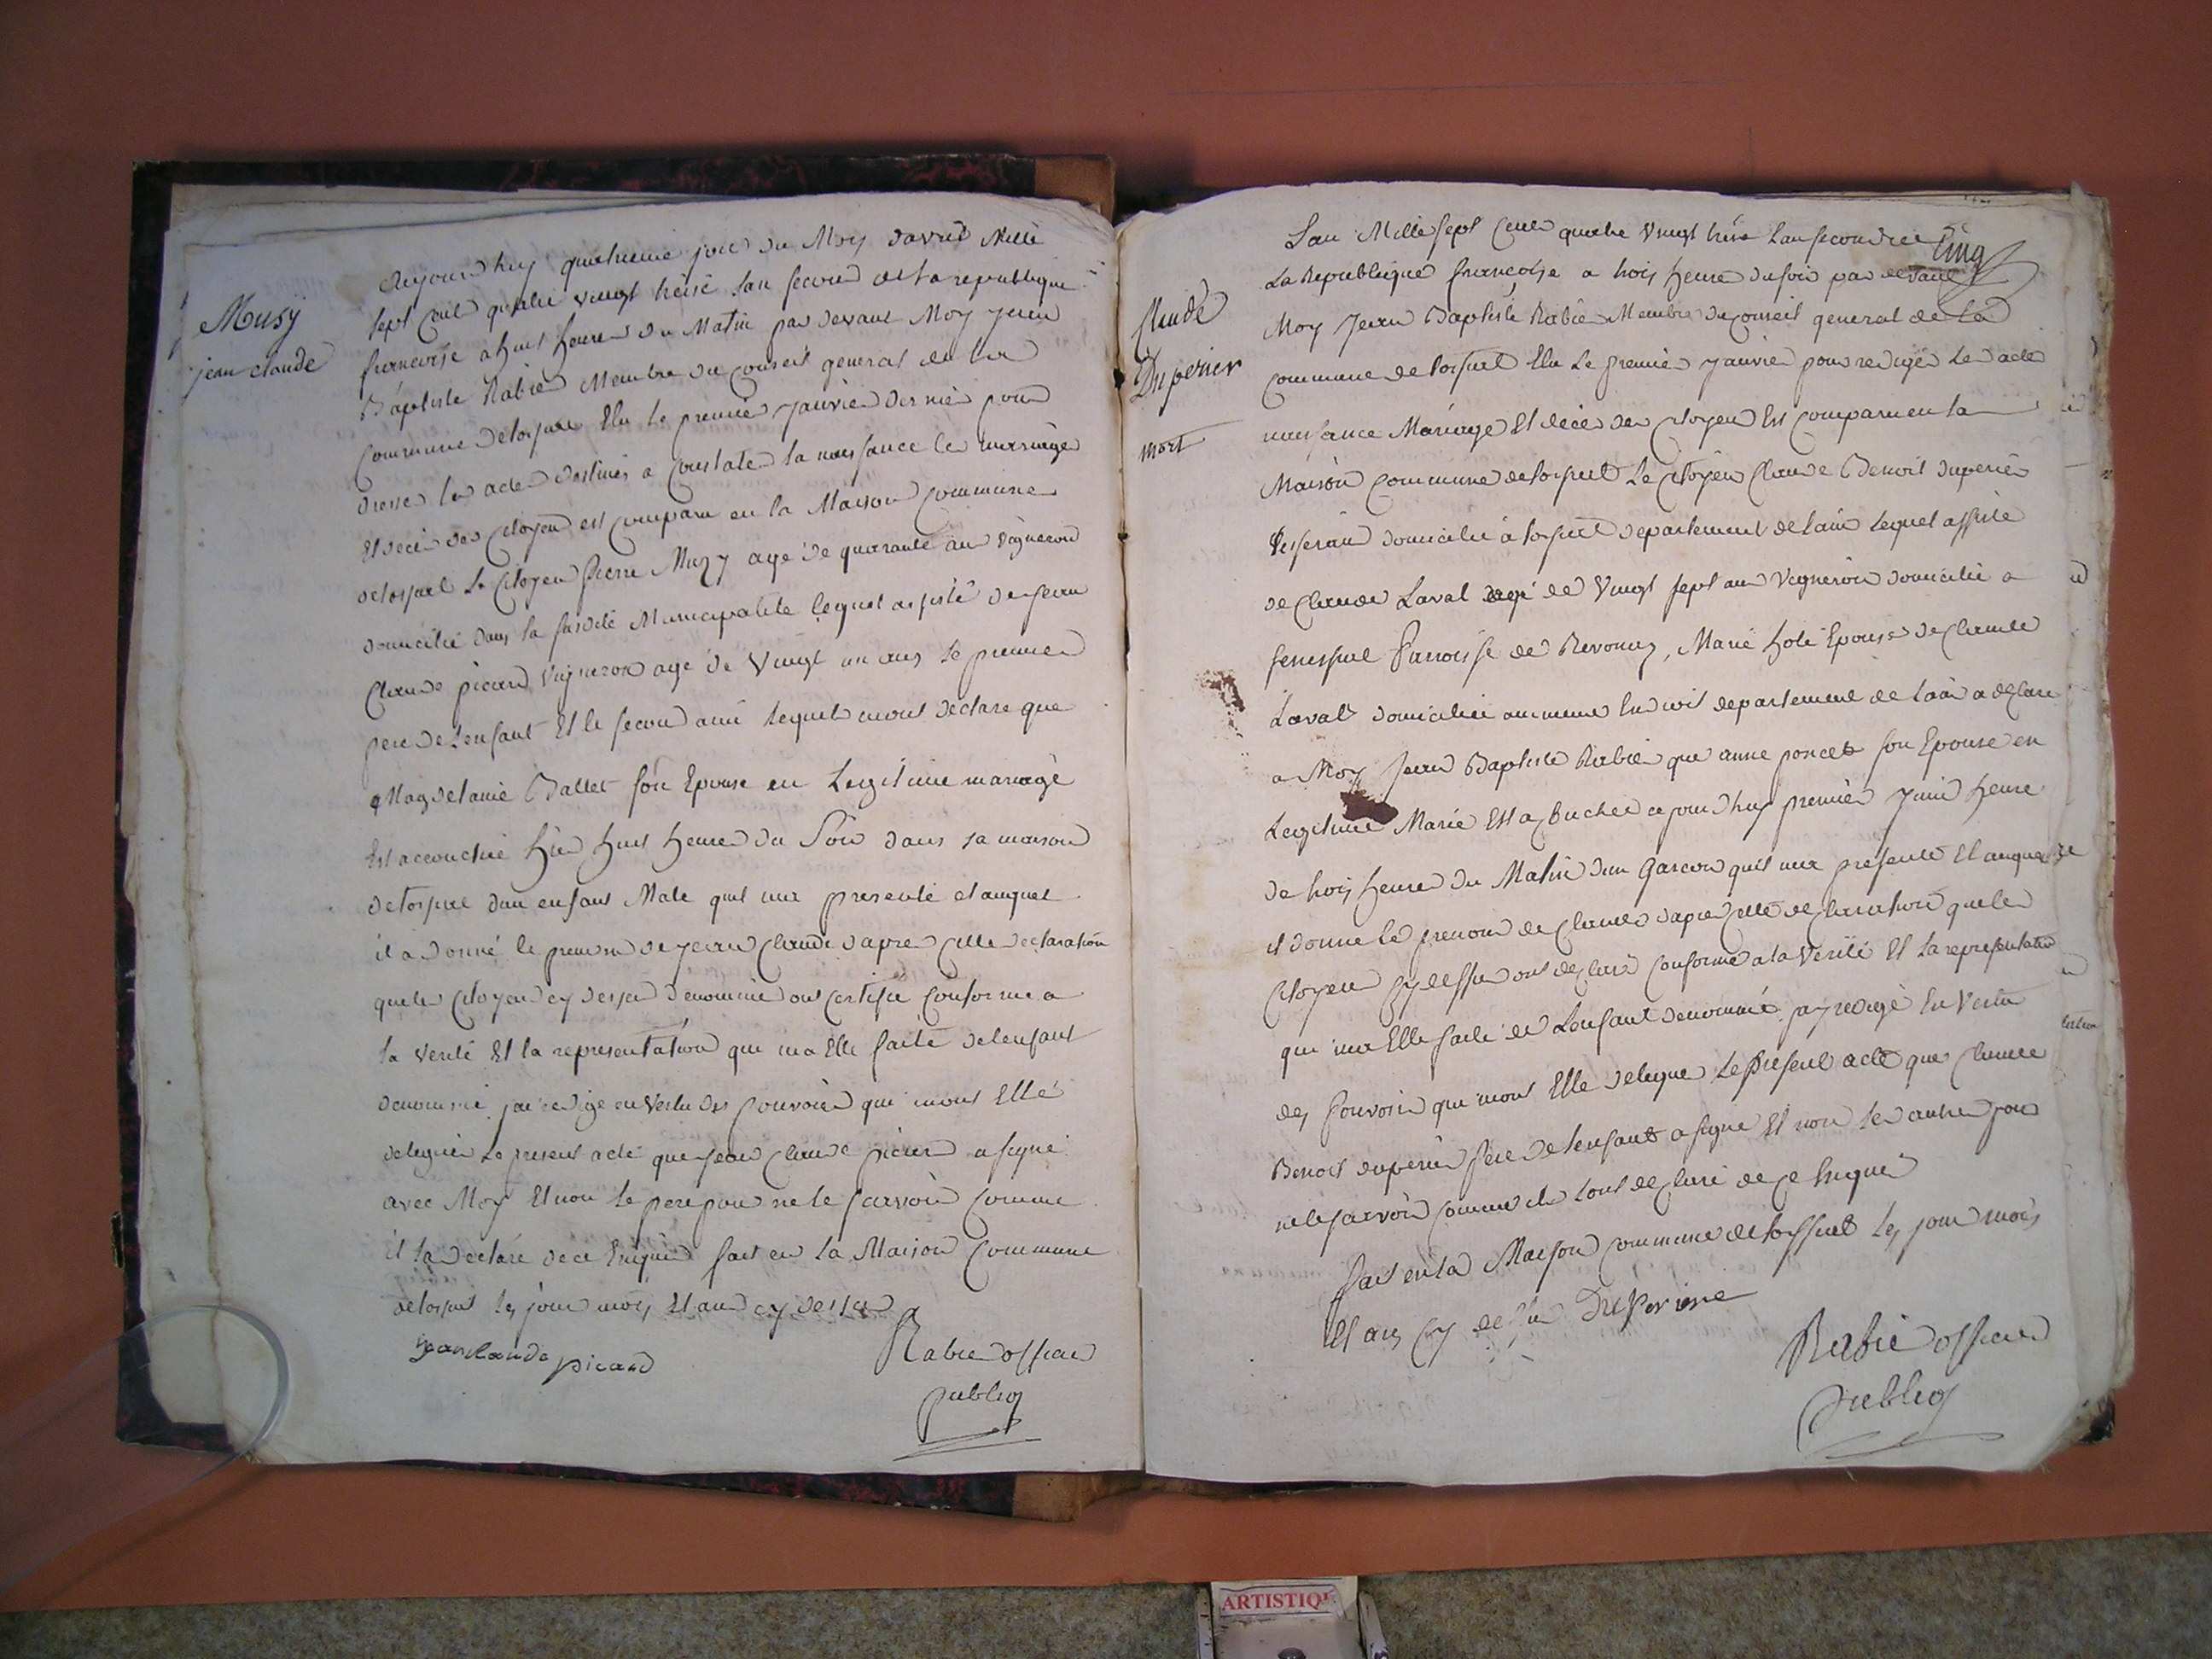 Musÿ
jean claude
Aujourdhuy quatrieme jour du Moy davril Mille
sept cent quatre vingt treise lan second de la republique
francoise a huit heure du Matin par devant Moy Jean
Baptiste Rabie Membre du conseil general de la
commune de tossiat Elu le premier janvier dernier pour
dresse les acte destinés a constater la naissance le mariage
Et deces des citoyen est comparu en la Maison commune
de tossiat le citoyen pierre Muzy agé de quarante an vigneron
domicilié dans la susdite Municipalité lequel assisté de jean
Claude picard vigneron agé de vingt un ans le premier
pere de Lenfant Et le second ami lequel mont déclare que
Magdelaine Ballet son Epouse en Legitime mariage
Est accouchée hier huit heure du Soir dans sa maison
de tossiat dun enfant Male quil ma presenté et auquel
il a donné le prenom de jean claude dapres cette declaration
que les citoyen cy dessu denommé ont certifié conforme a
la verité Et la representation qui ma Elle faite de lenfant
denommé jai redigé en vertu des pouvoir qui mont Elle
delegués Le present acte que jean claude picard a signé
avec Moy Et non le pere pour ne le scavoir comme
il la declaré de ce Enquis fait en la Maison commune
de tossiat les jour mois Et an cy dessu
jean claude picard
Rabie officier
publiq
cinq
Claude
Duperier
mort
Lan Mille sept cent quatre vingt treise Lan second de
La Republique françoise a trois heure du soir par devant
Moy Jean Baptiste Rabie Membre du conseil general de la
commune de tossiat Elu Le premier janvier pour redigé les acte
naissance Mariage Et deces des citoyen Est comparu en la
Maison commune de tossiat Le citoyen Claude Benoit duperier
tisseran domicilié à tossiat departement de Lain lequel assisté
de Claude Laval agé de vingt sept an vigneron domicilié a
senissiat Paroisse de Revonaz, Marie Epouse de Claude
Laval domiciliée au meme Endroit departement de Lain a declaré
a Moy Jean Baptiste Rabie que anne poncet son Epouse en
Legitime Marie Est acouchée ce jourdhuy premier heure
de trois heure du Matin dun garcon quil ma presenté Et auquel
il donne le prenom de Claude dapres cette declaration que les
Citoyen cy dessu ont declaré conforme a la verité Et la representation
qui ma Elle faite de Lenfant denommé jay redigé En vertu
des Pouvoir qui mont Elle delegue Le present acte que claude
Benoit duperier pere de lenfant a signé Et non les autre pour
ne le scavoir comme ils lont declaré de ce Enquis
fait en la Maison commune de tossiat les jour mois
Et an cy dessu Duperier
Rabie officier
publiq
ARTISTIQ